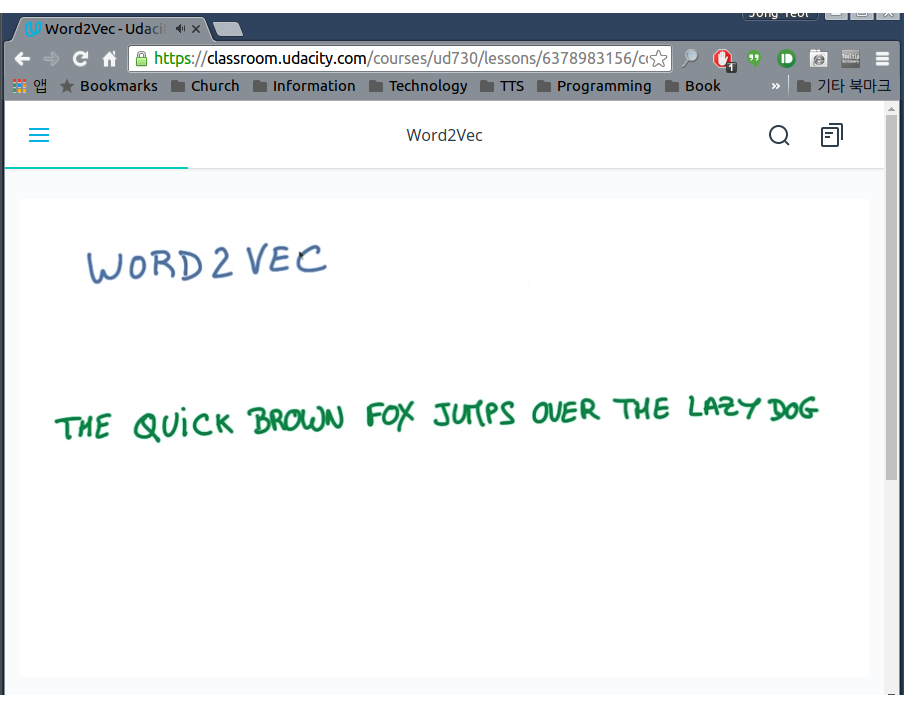 Word2Vec - Udaci
Jong Yeol
https://classroom.udacity.com/courses/ud730/lessons/6378983156/c
1
앱 Bookmarks Church Information Technology TTS Programming Book » 기타 북마크
Word2Vec
WORD2VEC
THE QUiCK BROWN FOX JUMPS OVER THE LAZY DOG